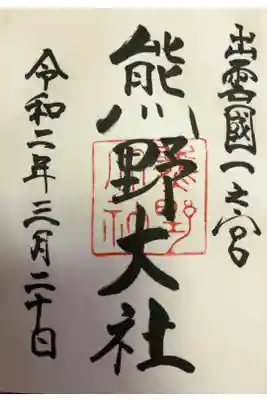 出雲國一之宮
熊野大社
令和二年三月二十日
熊野大社